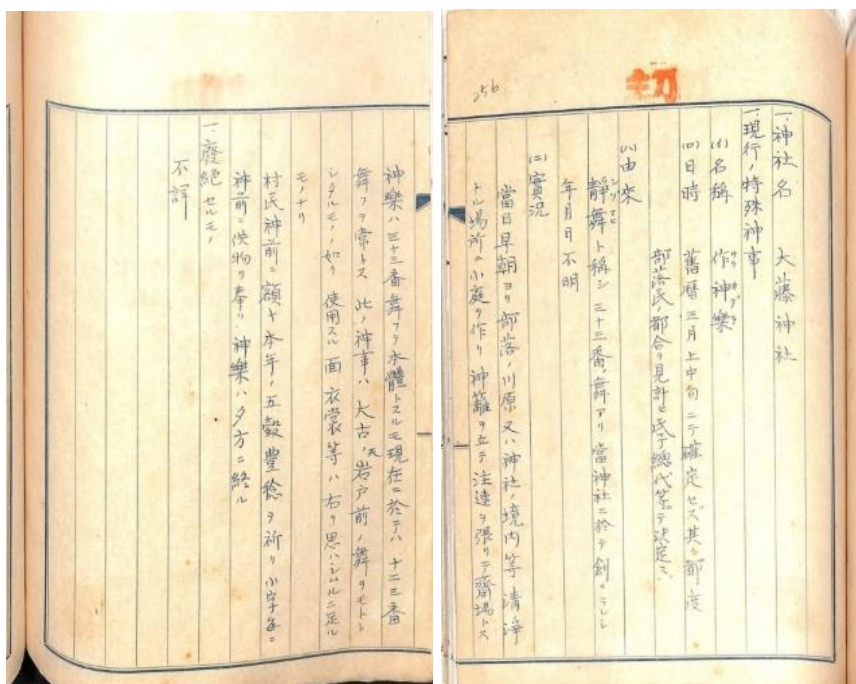 切
256
一、神社名 大藤神社
一、現行ノ特殊神事
(イ)名称 作神樂
サク カグラ
(ロ)日時 舊暦三月上中旬ニテ確定セズ其ノ都度
部落民ノ都合ヲ見計ヒ氏子總代等デ決定ス
(ハ)由来
靜舞ト稱シ三十三番ノ舞アリ當神社ニ於テ創メラレシ
年月日不明
(ニ)實況
當日早朝ヨリ部落ノ川原又ハ神社ノ境内等清淨
ナル場所ニ小庭ヲ作リ神籬ヲ立テ注連ヲ張リテ齋場トス
神樂ハ三十三番舞フヲ本體トスルモ現在ニ於テハ十二三番
舞フヲ常トス 此ノ神事ハ太古ノ天岩戸前ノ舞ヲモトト
シタルモノノ如ク 使用スル面衣裳等ハ古ヲ思ハシムルニ足ル
モノナリ
村民神前ニ額キ本年ノ五穀豊稔ヲ祈リ小字毎ニ
神前ニ供物ヲ奉リ神樂ハ夕方ニ終ル
一、廢絶セルモノ
不詳